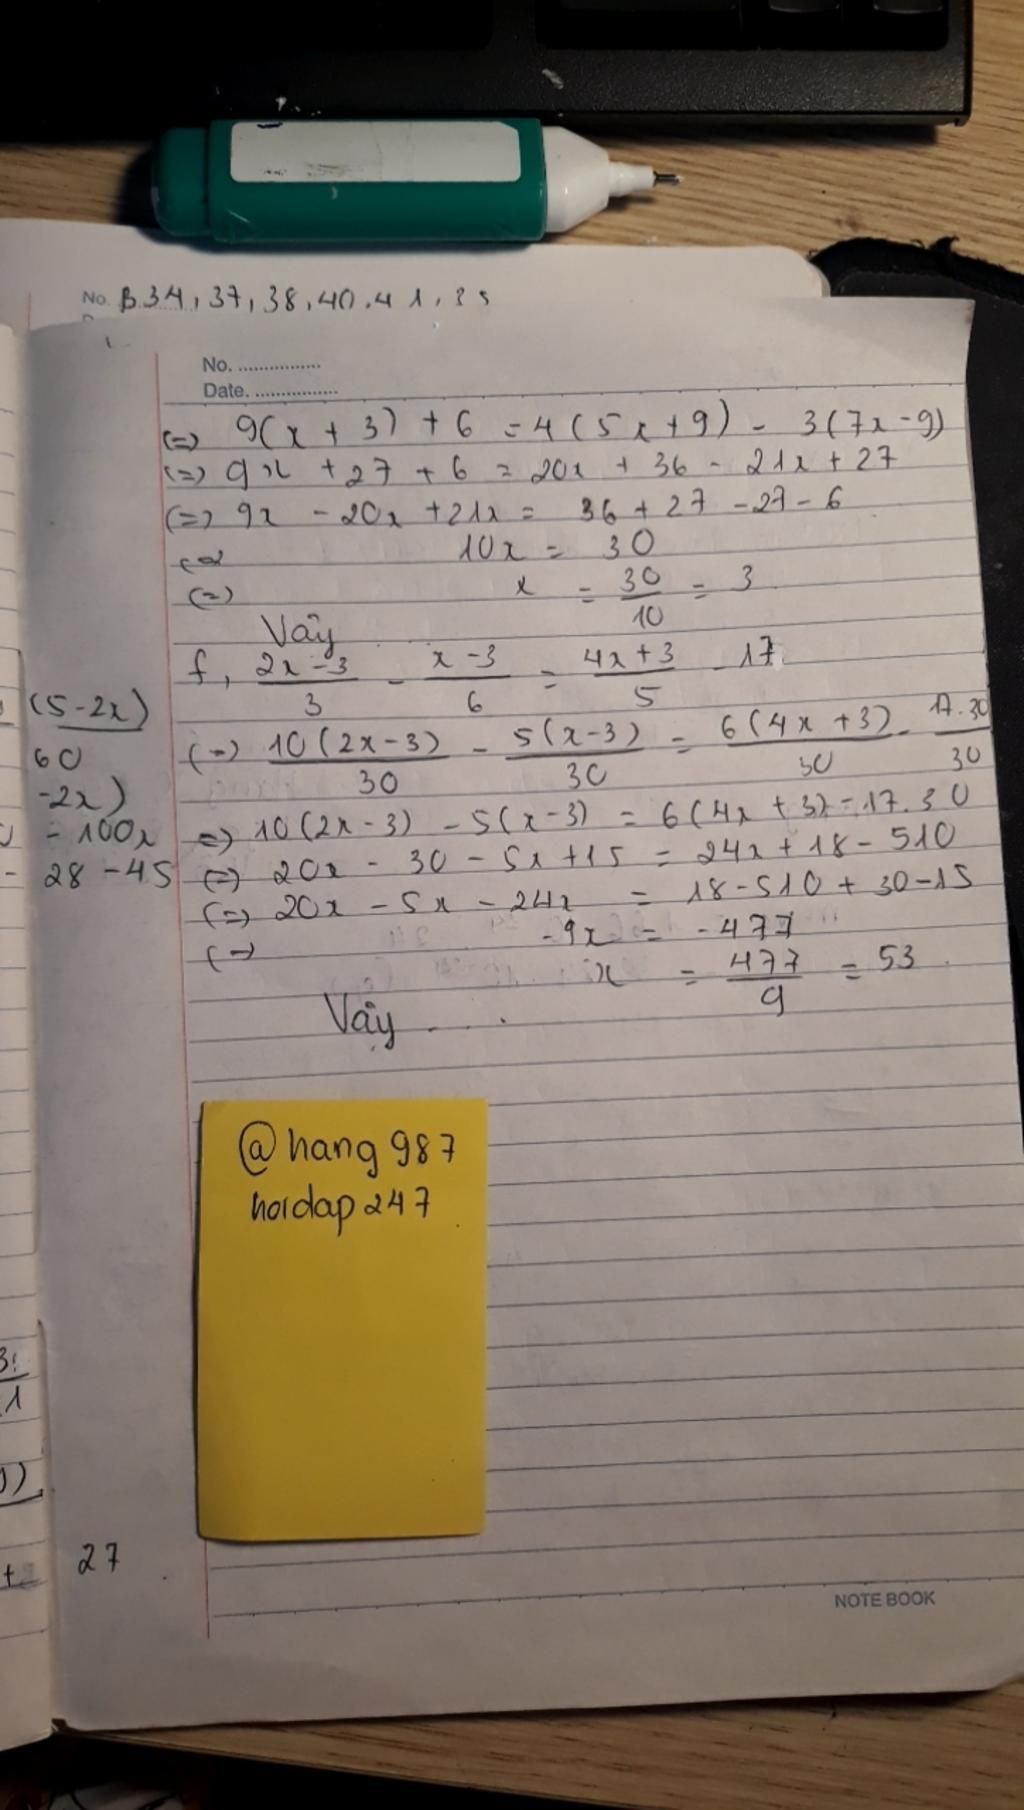 No. B34, 37, 38, 40. 41, 35
No. ................
Date. ................
(=) 9(x + 3) + 6 = 4(5x + 9) - 3(7x - 9)
(=) 9x + 27 + 6 = 20x + 36 - 21x + 27
(=) 9x - 20x + 21x = 36 + 27 - 27 - 6
(=) 10x = 30
(=) x = 30/10 = 3
Vậy
f, (2x - 3)/3 - (x - 3)/6 = (4x + 3)/5 - 17
(=) 10(2x - 3)/30 - 5(x - 3)/30 = 6(4x + 3)/30 - 17.30/30
=) 10(2x - 3) - 5(x - 3) = 6(4x + 3) - 17.30
(=) 20x - 30 - 5x + 15 = 24x + 18 - 510
(=) 20x - 5x - 24x = 18 - 510 + 30 - 15
(=) -9x = -477
x = 477/9 = 53
Vậy . . .
(5 - 2x)
60
-2x)
= 100x
28 - 45
27
@hang987
hoidap247
NOTE BOOK